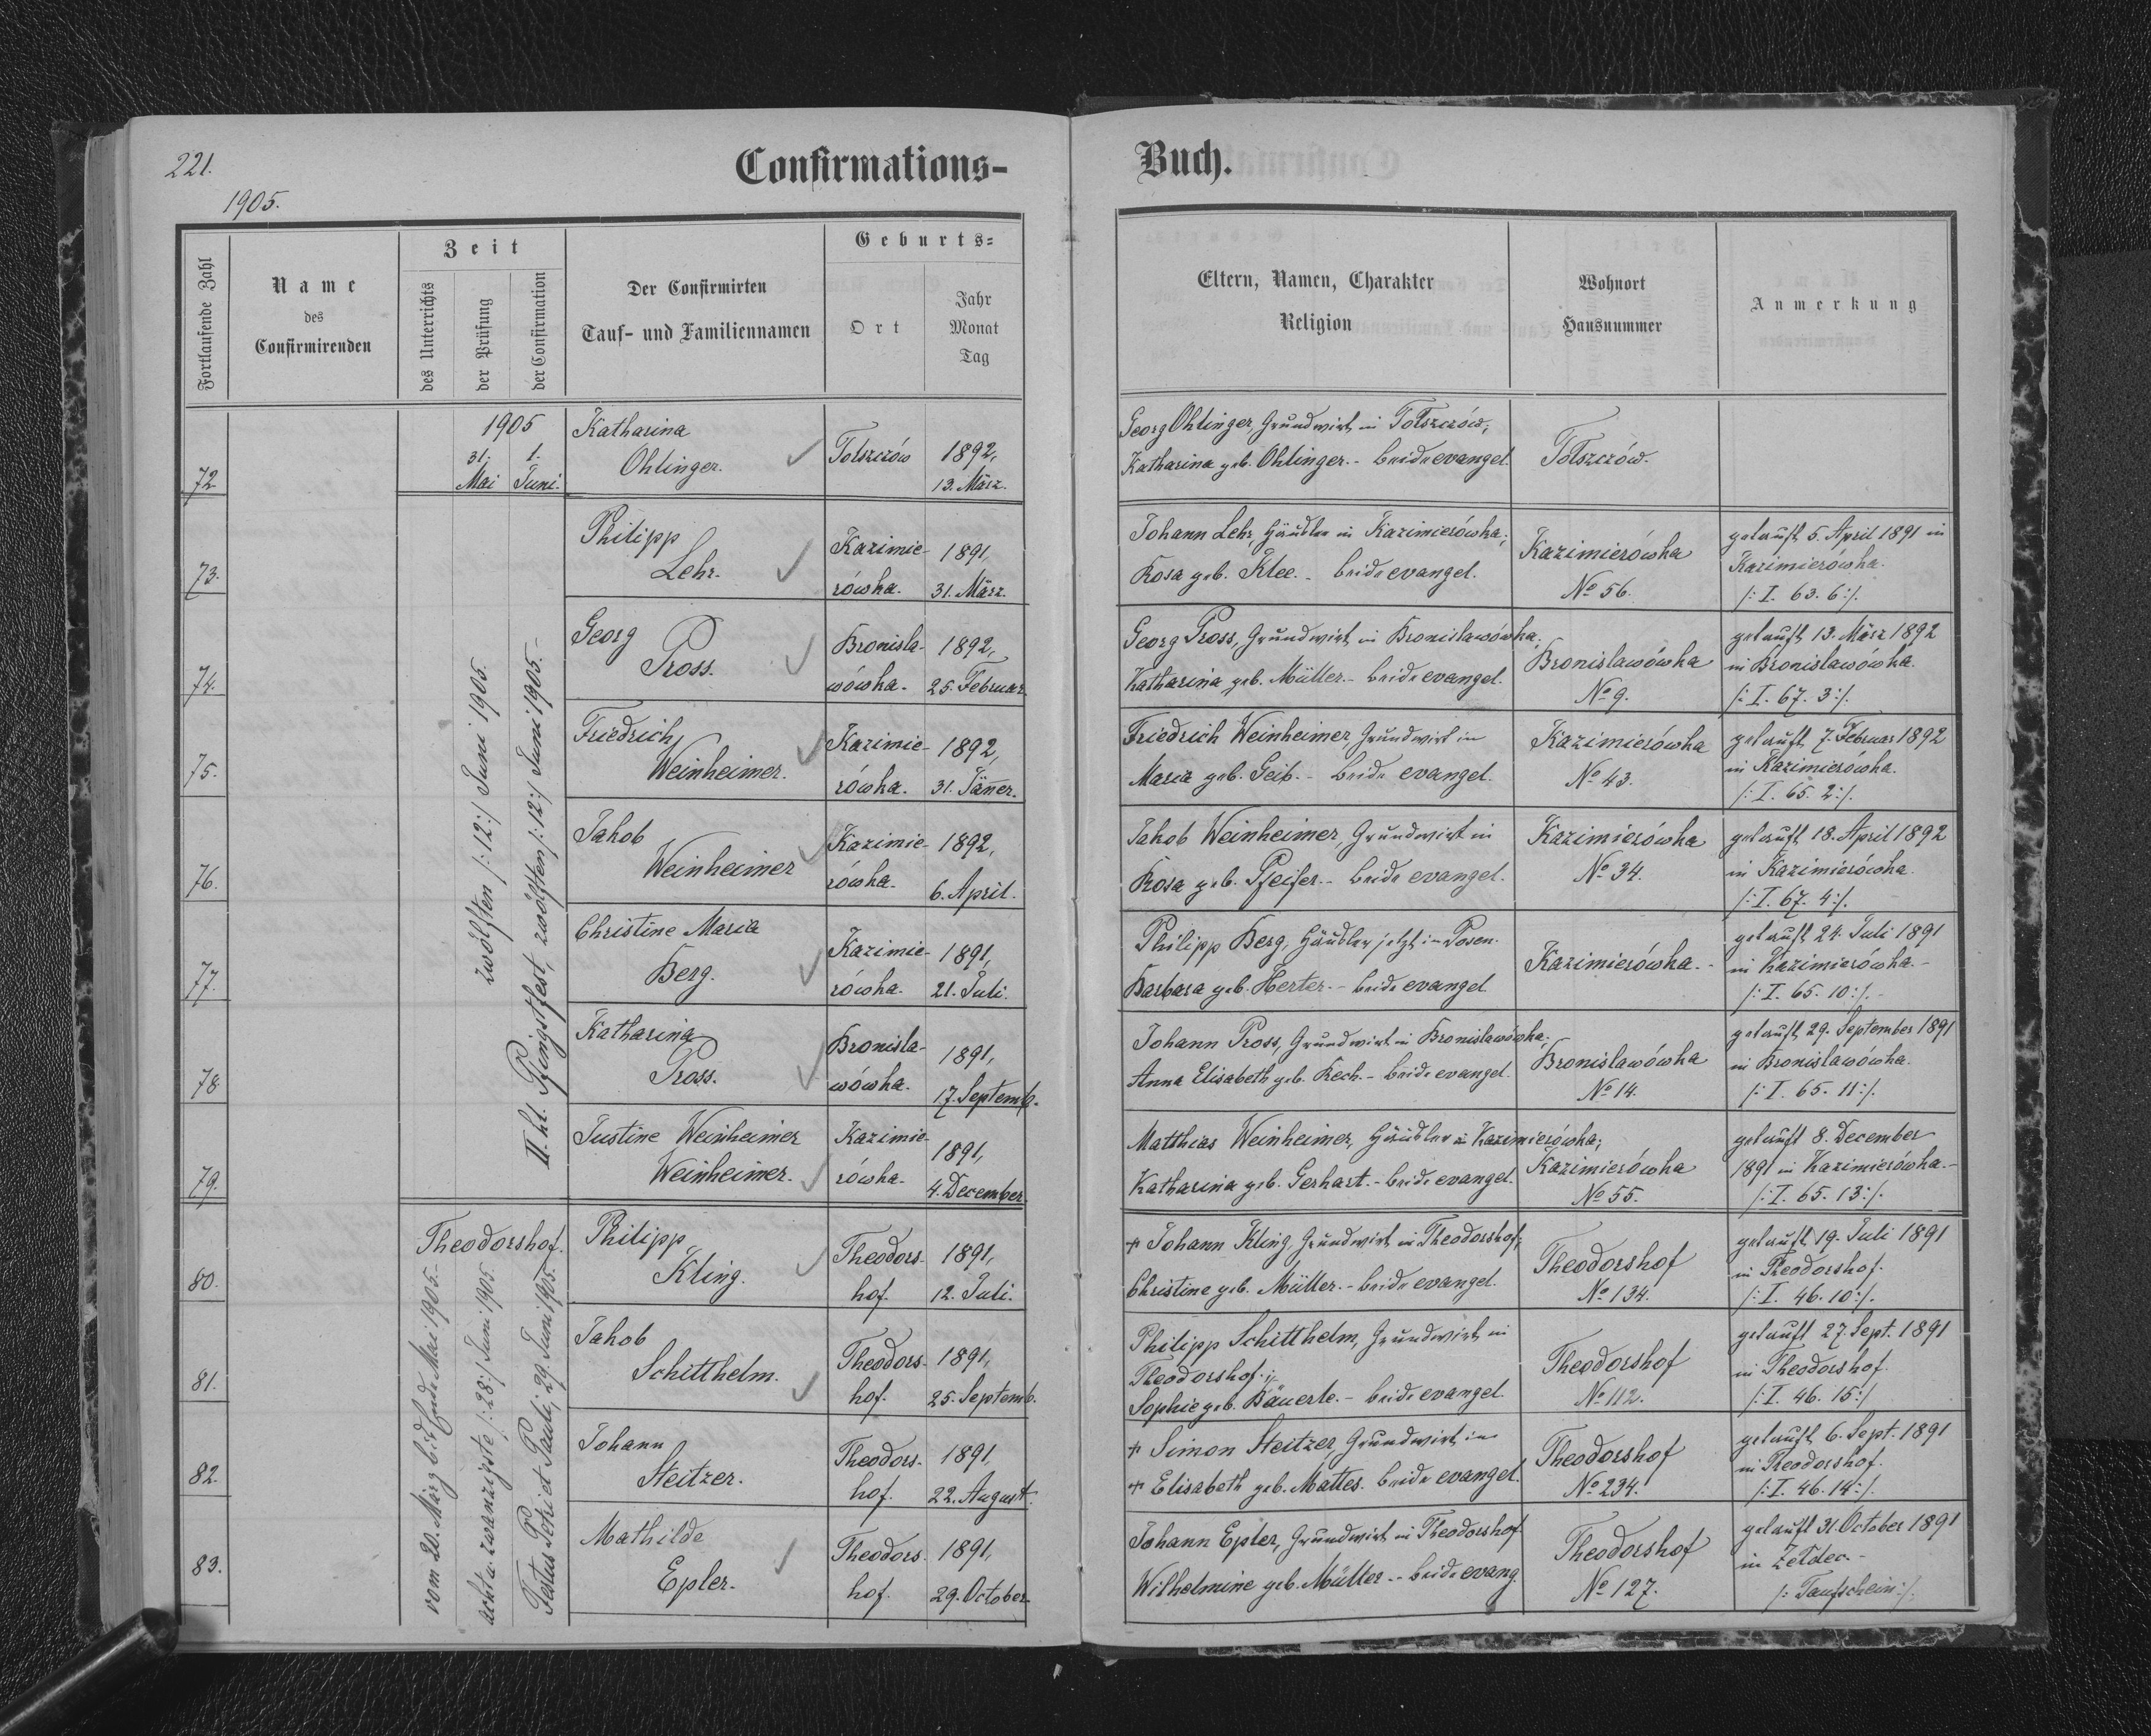 221.
1905.
Confirmations-
Fortlaufende Zahl
Name
des
Confirmirenden
Zeit
des Unterrichts
der Prüfung
der Confirmation
Der Confirmirten
Tauf- und Familiennamen
Geburts-
Ort
Jahr
Monat
Tag
1905
31. Mai
1. Juni.
72
Katharina
Ohlinger.
Tolszczów
1892,
13. März.
zwölften /:12:/ Juni 1905.
II. hl. Pfingstfest, zwölften /:12:/ Juni 1905.-
73.
Philipp
Lehr.
Kazimie-
rówka.
1891,
31. März.
74.
Georg
Pross.
Bronisla-
wówka.
1892,
25. Februar.
75.
Friedrich
Weinheimer.
Kazimie-
rówka.
1892,
31. Jänner.
76.
Jakob
Weinheimer
Kazimie-
rówka.
1892,
6. April.
77.
Christine Maria
Berg.
Kazimie-
rówka.
1891,
21. Juli.
78
Katharina
Pross.
Bronisla-
wówka.
1891,
17. Septemb.
79.
Justine Weinheimer
Weinheimer.
Kazimie-
rówka.
1891,
4. December.
Theodorshof.
vom 20. März bis Ende Mai 1905.-
achtu. zwanzigste /:28:/ Juni 1905.
Festus Petri et Pauli, 29. Juni 1905.
80.
Philipp
Kling.
Theodors-
hof.
1891,
12. Juli.
81.
Jakob
Schitthelm.
Theodors-
hof.
1891,
25. Septemb.
82.
Johann
Steitzer.
Theodors-
hof.
1891,
22. August.
83.
Mathilde
Epler.
Theodors-
hof.
1891,
29. October.
Buch.
Eltern, Namen, Charakter
Religion
Wohnort
Hausnummer
Anmerkung
Georg Ohlinger, Grundwirt in Tolszczów,
Katharina geb. Ohlinger.- beide evangel.
Tolszczów.
Johann Lehr, Häusler in Kazimierówka,
Rosa geb. Klee.- beide evangel.
Kazimierówka
No 56.
getauft 5. April 1891 in
Kazimierówka.
/:I. 63. 6:/.
Georg Pross, Grundwirt in Bronislawówka,
Katharina geb. Müller.- beide evangel.
Bronislawówka
No 9.
getauft 13. März 1892
in Bronislawówka.
/:I. 67. 3:/.
Friedrich Weinheimer Grundwirt in
Maria geb. Geib.- beide evangel.
Kazimierówka
No 43.
getauft 7. Februar 1892
in Kazimierowka.
/:I. 65. 2:/.
Jakob Weinheimer, Grundwirt in
Rosa geb. Pfeifer.- beide evangel.
Kazimierówka
No 34.
getauft 18. April 1892
in Kazimierówka.
/:I. 67. 4:/.
Philipp Berg, Häusler jetzt in Posen.
Barbara geb. Herter.- beide evangel.
Kazimierówka.-
getauft 24. Juli 1891
in Kazimierówka.-
/:I. 65. 10:/.-
Johann Pross, Grundwirt in Bronislawówka,
Anna Elisabeth geb. Rech.- beide evangel.
Bronislawówka
No 14.
getauft 29. September 1891
in Bronislawówka.
/:I. 65. 11:/.
Matthias Weinheimer, Häusler in Kazimierówka;
Katharina geb. Gerhart.- beide evangel.
Kazimierówka
No 55.
getauft 8. December
1891 in Kazimierówka.-
/:I. 65. 13:/.
+ Johann Kling, Grundwirt in Theodorshof,
Christine geb. Müller.- beide evangel.
Theodorshof
No 134.
getauft 19. Juli 1891
in Theodorshof.
/:I. 46. 10:/.
Philipp Schitthelm, Grundwirt in
Theodorshof;
Sophie geb. Bäuerle.- beide evangel.
Theodorshof
No 112.
getauft 27. Sept. 1891
in Theodorshof.
/:I. 46. 15:/
+ Simon Steitzer, Grundwirt in
+ Elisabeth geb. Mattes. beide evangel.
Theodorshof
No 234.
getauft 6. Sept. 1891
in Theodorshof.
/:I. 46. 14:/.
Johann Epler, Grundwirt in Theodorshof
Wilhelmine geb. Müller.- beide evang.
Theodorshof
No 127.
getauft 31. October 1891
in Zeldec.-
/:Taufschein:/.